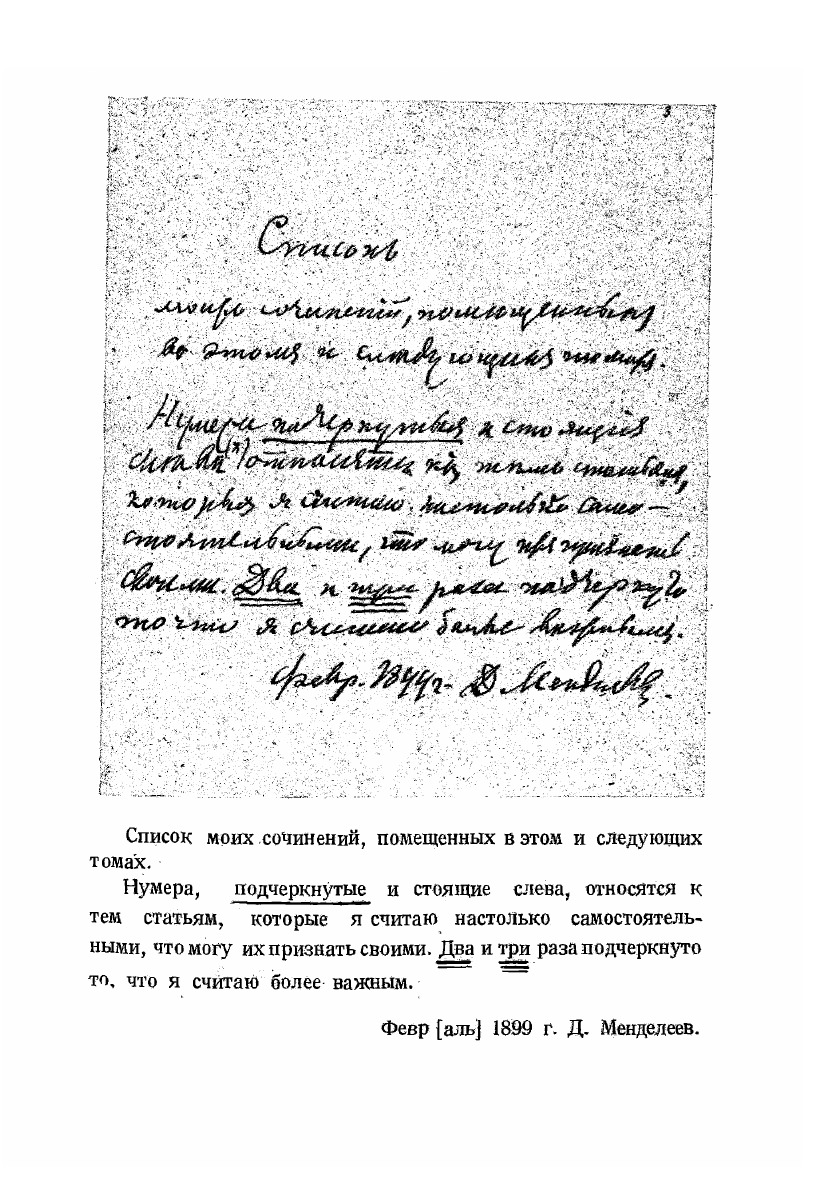 3
Списокъ
моихъ сочиненій, помещенныхъ
въ этомъ и следующихъ томахъ.
Нумера подчеркнутые и стоящія
слева (*) относятся къ темъ статьямъ,
которыя я считаю настолько само-
стоятельными, что могу признать
своими. Два и три раза подчеркнуто
то что я считаю более важнымъ.
Февр. 1899 г. Д Менделеевъ.
Список моих сочинений, помещенных в этом и следующих
томах.
Нумера, подчеркнутые и стоящие слева, относятся к
тем статьям, которые я считаю настолько самостоятель-
ными, что могу их признать своими. Два и три раза подчеркнуто
то, что я считаю более важным.
Февр [аль] 1899 г. Д. Менделеев.